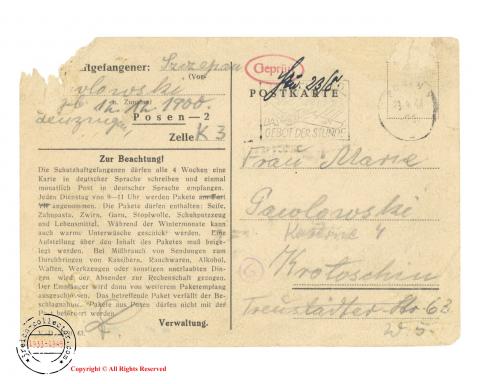 aftgefangener: Szczepan
(Vor-
Pawlowski
u. Zuname)
12. 12. 1900.
Posen — 2
Zelle K 3
Zur Beachtung!
Die Schutzhaftgefangenen dürfen alle 4 Wochen eine
Karte in deutscher Sprache schreiben und einmal
monatlich Post in deutscher Sprache empfangen.
Jeden Dienstag von 9—11 Uhr werden Pakete
angenommen. Die Pakete dürfen enthalten: Seife,
Zahnpasta, Zwirn, Garn, Stopfwolle, Schuhputzzeug
und Lebensmittel. Während der Wintermonate kann
auch warme Unterwäsche geschickt werden. Eine
Aufstellung über den Inhalt des Paketes muß beige-
legt werden. Bei Mißbrauch von Sendungen zum
Durchbringen von Kassibern, Rauchwaren, Alkohol,
Waffen, Werkzeugen oder sonstigen unerlaubten Din-
gen wird der Absender zur Rechenschaft gezogen.
Der Empfänger wird dann von weiterem Paketempfang
ausgeschlossen. Das betreffende Paket verfällt der Be-
schlagnahme. Pakete aus Posen dürfen nicht mit der
Post befördert werden.
Verwaltung.
Geprüft
POSTKARTE
GEBOT DER STUNDE
Frau Maria
Pawlowski
Krotoschin
Treustädter-Str 63
ireich-collector.com
1933-1945
Copyright © All Rights Reserved